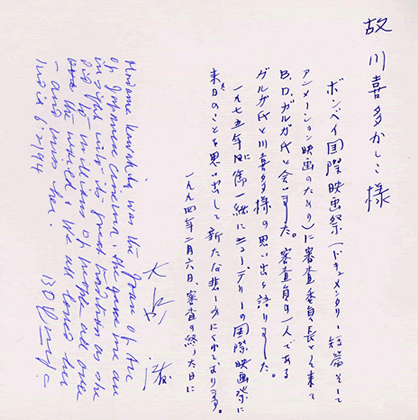 故 川喜多かしこ様
ボンベイ国際映画祭(ドキュメンタリー・短篇そして
アニメーション映画のための)に審査委員長として来て
B.D.ガルガ氏と会いました。審査員の一人である
ガルガ氏と川喜多様の思い出を語りました。
一九七五年に御一緒にニューデリーの国際映画祭に
来た日のことを思い出して新たな悲しみにくれております。
一九九四年二月六日 審査の終った日に
大島 渚
Madame Kawakita was the Joan of Arc
of Japanese cinema. She gave me an
insight into its great traditions as she
did to millions of people all over
the world. We all loved her
- and miss her.
India 6 2/94